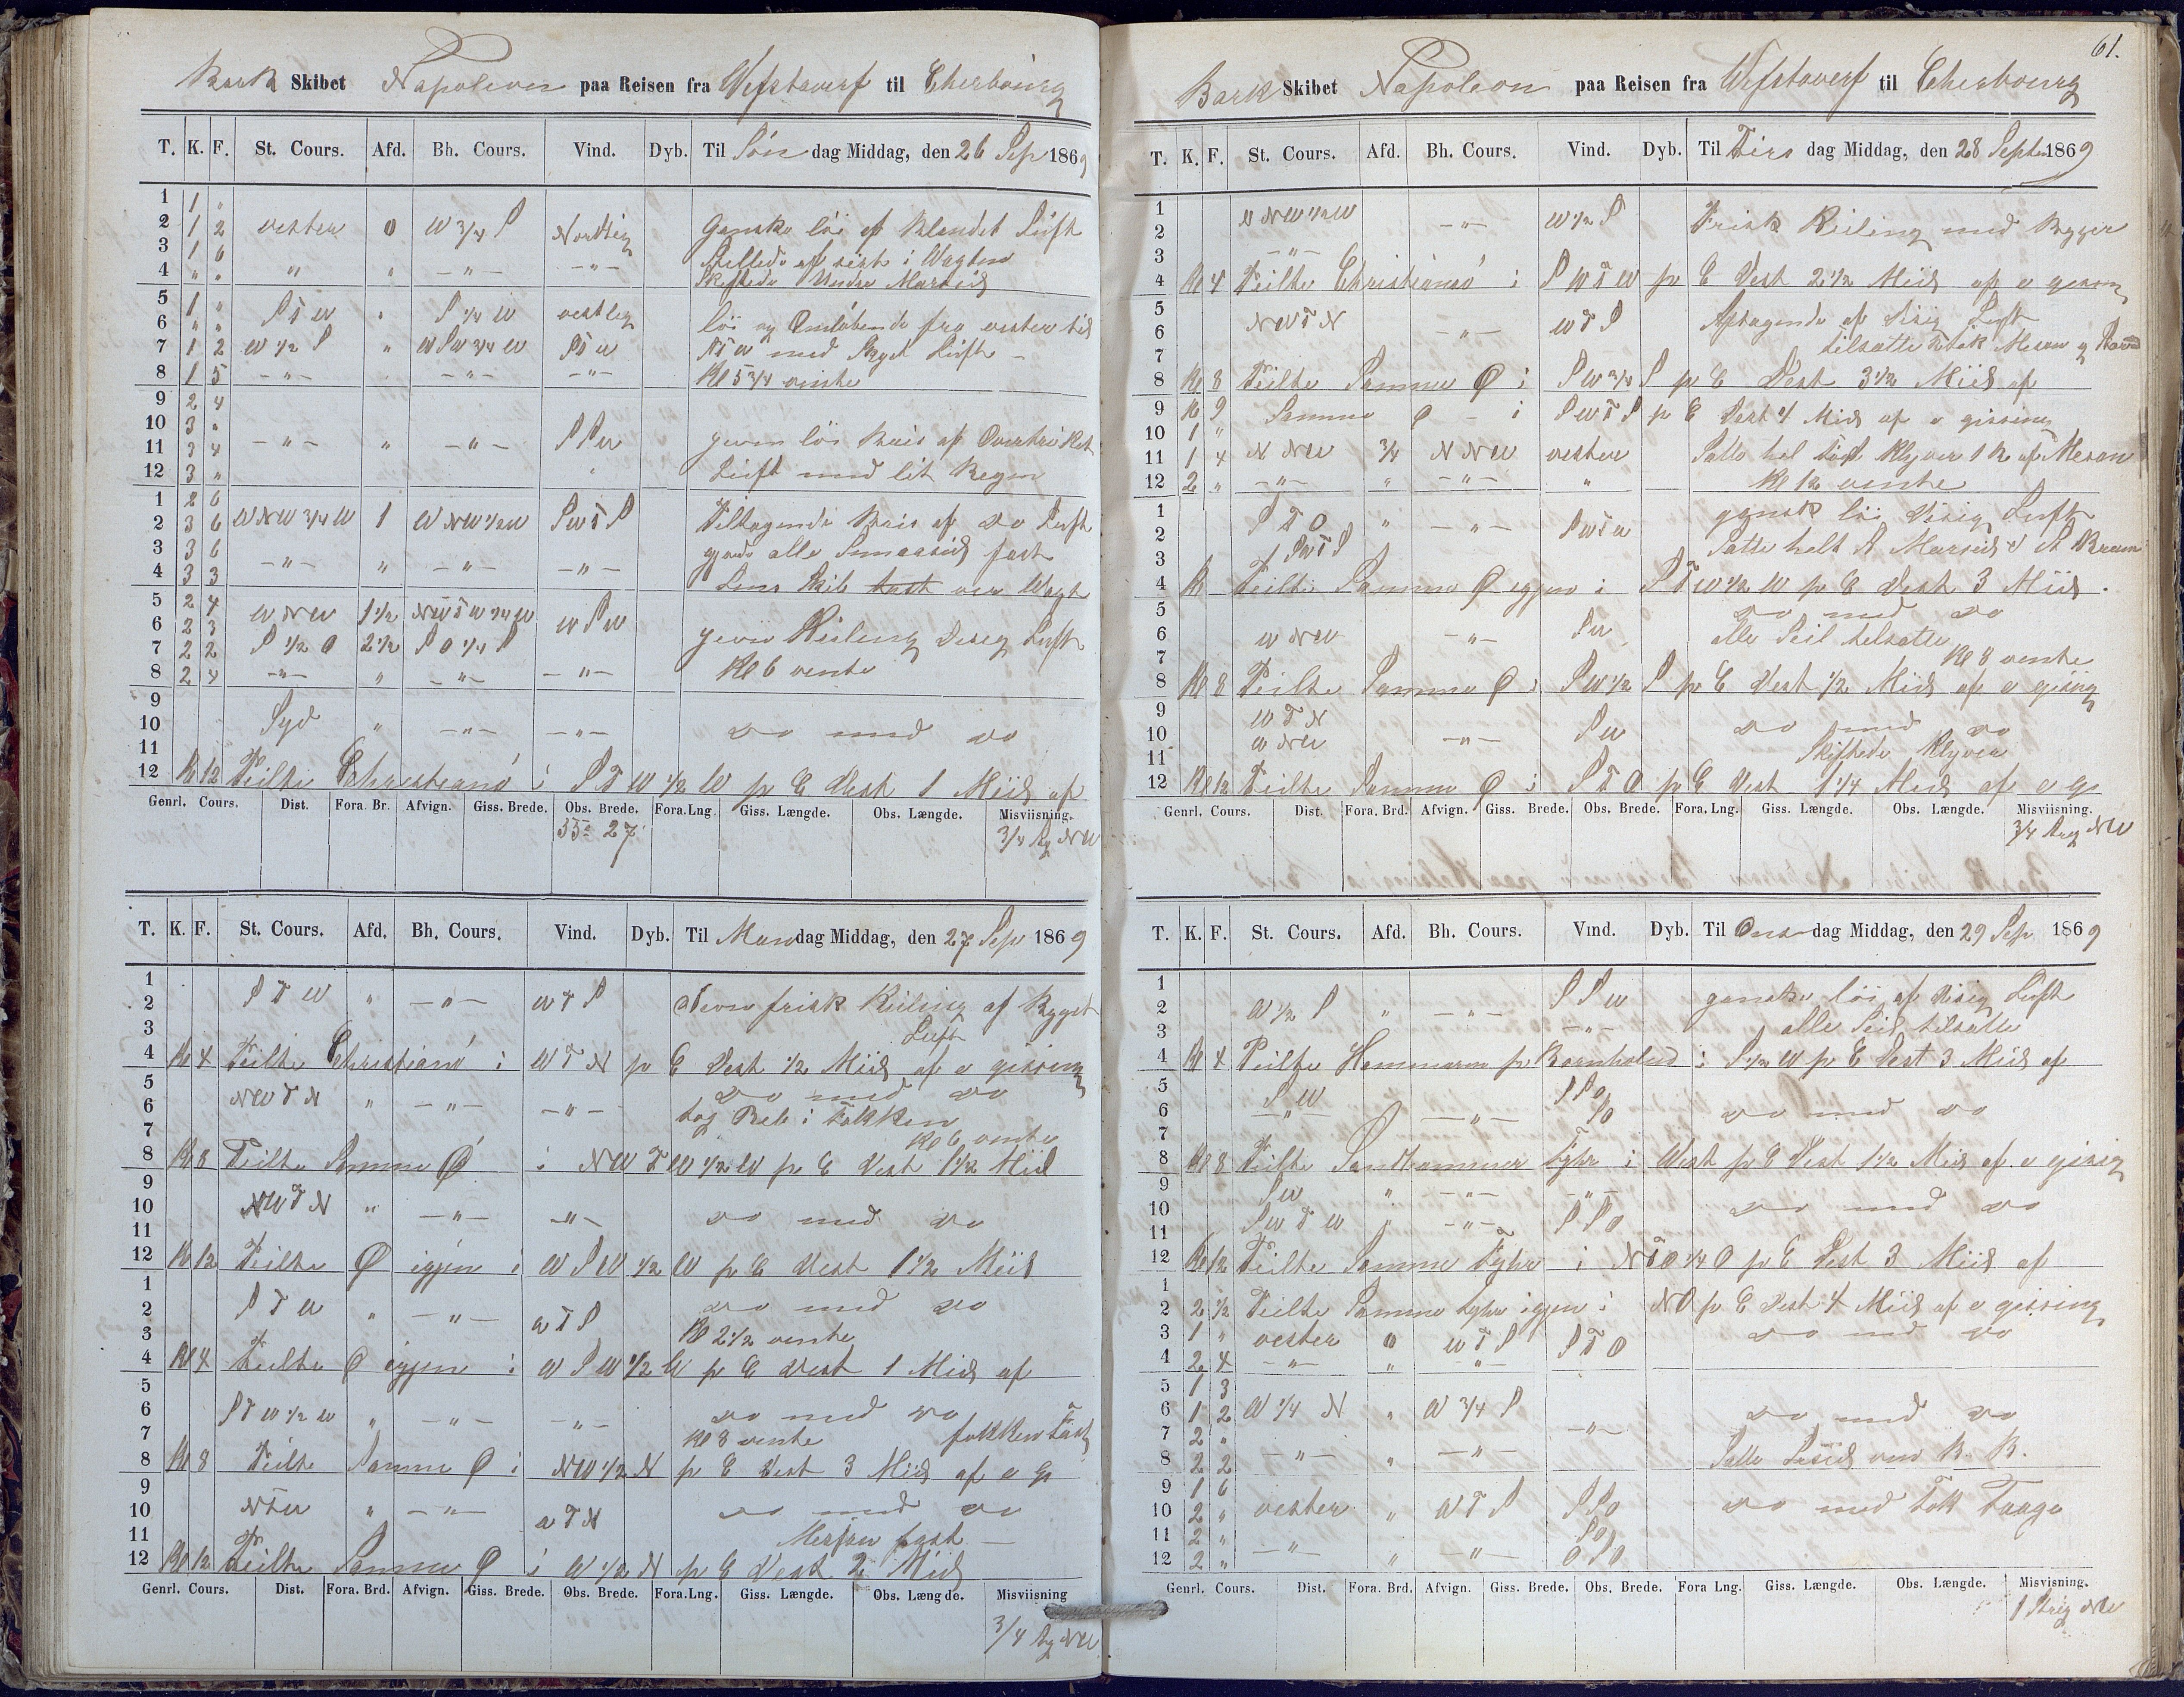 Bark Skibet Napoleon paa Reisen fra Wefstaverf til Cherbourg
T. K. F. St. Cours. Afd. Bh. Cours. Vind. Dyb. Til Søn dag Middag, den 26 Sep 1869
1 1 "
2 1 2 vester 0 W 3/4 S Nordlig Ganske löi af Klandet Luft
3 1 6 Stillede af sist i Wagten
4 " " " " — " — — " — Skiftede Undra Marseil
5 1 " S T W " S 1/4 W vestleg löi og Omlöbende fra vester til
6 " "
7 1 2 W 1/2 S " W S W 3/4 W S T W N T W med Skyet Luft —
8 1 5 — " — — " — — " — Kl 5 3/4 vente
9 2 4
10 3 "
11 3 4 — " — " — " — S S W jevn löi Kuis af Overtrukket
12 3 " Luft med lit Regn
1 2 6
2 3 6 W N W 3/4 W 1 W N W 1/2 W S W T S Tiltagende Kuis af do Luft
3 3 6 gjorde alle Smaaseil fast
4 3 3 — " — " — " — — " — Lens Skib ver Wagt
5 2 4 W N W 1 1/2 N W T W 3/4 W W S W
6 2 3 jevn Kuling Diseg Luft
7 2 2 S 1/2 O 2 1/2 S O 1/4 S
8 2 4 — " — " — " — — " — Kl 6 vente
9
10 Syd " — " — — " — do med do
11
12 Kl 12 Peilte Christiansö i S T W 1/2 W p C Dest 1 Miil af
Genrl. Cours. Dist. Fora. Br. Afvign. Giss. Brede. Obs. Brede. Fora. Lng. Giss. Længde. Obs. Længde. Misviisning.
55° 27' 3/4 Sg NW
T. K. F. St. Cours. Afd. Bh. Cours. Vind. Dyb. Til Man dag Middag, den 27 Sep 1869
1
2 S T W " — " — W T S Jevn frisk Kuling af Skyet
3 Luft
4 Kl 4 Peilte Christiansö i W T N p C Dest 1/2 Miil af o gissing
5 NW T N " — " — — " — do med do
6 tog Reb i Fokken
7 Kl 6 vente
8 Kl 8 Peilte Samme Ø i NW T W 1/2 W p C Dest 1 1/2 Miil
9
10 NW T N " — " — — " — do med do
11
12 Kl 12 Peilte Ø igjen i W S W 1/2 W p C Dest 1 1/2 Miil
1
2 S T W " — " — W T S do med do
3 Kl 2 1/2 vente
4 Kl 4 Peilte Ø igjen i W S W 1/2 W p C Dest 1 Miil af
5
6 S T W 1/2 W " — " — — " — do med do
7 Kl 8 vente fokken Fast
8 Kl 8 Peilte Samme Ø i NW 1/2 N p C Dest 3 Miil af o G
9
10 N T W " — " — W T N do med do
11 Mesan fast —
12 Kl 12 Peilte Samme Ø i W 1/2 N p C Dest 2 Miil
Genrl. Cours. Dist. Fora. Brd. Afvign. Giss. Brede. Obs. Brede. Fora. Lng. Giss. Længde. Obs. Længde. Misviisning
3/4 Sg NW
61.
Bark Skibet Napoleon paa Reisen fra Wefstaverf til Cherbourg
T. K. F. St. Cours. Afd. Bh. Cours. Vind. Dyb. Til Tirs dag Middag, den 28 Septr 1869
1
2 N NW 1/2 W — " — W 1/2 S Frisk Kuling med Bygger
3 — " —
4 Kl 4 Peilte Christiansö i S W T W p C Dest 2 1/2 Miil af o gissing
5 Aftagende af disig Luft
6 NW T N — " — W T S tilsatte Fok Mesan og
7
8 Kl 8 Peilte Samme Ø i S W 3/4 S p C Dest 3 1/2 Miil af
9 Kl 9 Samme Ø - i S W T S p C Dest 4 Miil af o gissing
10 1 "
11 1 4 N NW 3/4 N NW vester Satte hel Klyver 1 R af Mesan
12 2 " — " — " — " — " Kl 12 vente
1 gansk löi disig Luft
2 S T O " — " — S W T W
3 S W T S Satte helt St Marseil & St Bram
4 Kl Peilte Samme Ø igjen i S T W 1/2 W p C Dest 3 Miil.
5 do med do
6 W NW — " — S W alle Seil tilsatte
7 Kl 8 vente
8 Kl 8 Peilte Samme Ø i S W 1/2 S p C Dest 1/2 Miil af o gising
9 W T N
10 W NW — " — S W do med do
11 Skiftede Klyver
12 Kl 12 Peilte Samme Ø i S T O p C Dest 1 1/4 Miil af o gs
Genrl. Cours. Dist. Fora. Brd. Afvign. Giss. Brede. Obs. Brede. Fora. Lng. Giss. Længde. Obs. Længde. Misviisning.
3/4 Streg NW
T. K. F. St. Cours. Afd. Bh. Cours. Vind. Dyb. Til Ons dag Middag, den 29 Sep 1869
1
2 W 1/2 S " — " — S S W ganske löi af disig Luft
3 — " — alle Seil tilsatte
4 Kl 4 Peilte Hammaren på Bornholm i S 1/2 W p C Dest 3 Miil af
5 S W S S O
6 — " — — " — S O do med do
7
8 Kl 8 Peilte Sandhammer Fyhr i West p C Dest 1 1/2 Miil af o gising
9 S W " — " — — " —
10 S W T W " — " — S S O do med do
11
12 Kl 12 Peilte Samme Fyhr i N T O 1/4 O p C Dest 3 Miil af
2 2 1/2 Peilte Samme fyhr igjen i N O p C Dest 4 Miil af o gissing
3 1 " vester 0 W T S S T O do med do
4 2 4 — " — " "
5 1 3
6 1 2 W 1/4 N " W 3/4 S do med do
7 2 " — " —
8 2 2 — " — " — " — Satte Læseil ved B. B.
9 1 6
10 2 " vester " W T S S S O do med Tök Taage
11 2 " S O
12 2 " — " — " — " — O S O
Genrl. Cours. Dist. Fora. Brd. Afvign. Giss. Brede. Obs. Brede. Fora Lng. Giss. Længde. Obs. Længde. Misvisning.
1 Streg NW